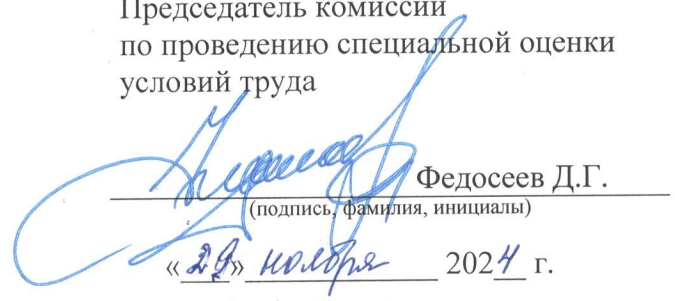 Председатель комиссии
по проведению специальной оценки
условий труда
Федосеев Д.Г.
(подпись, фамилия, инициалы)
«29» ноября 2024 г.